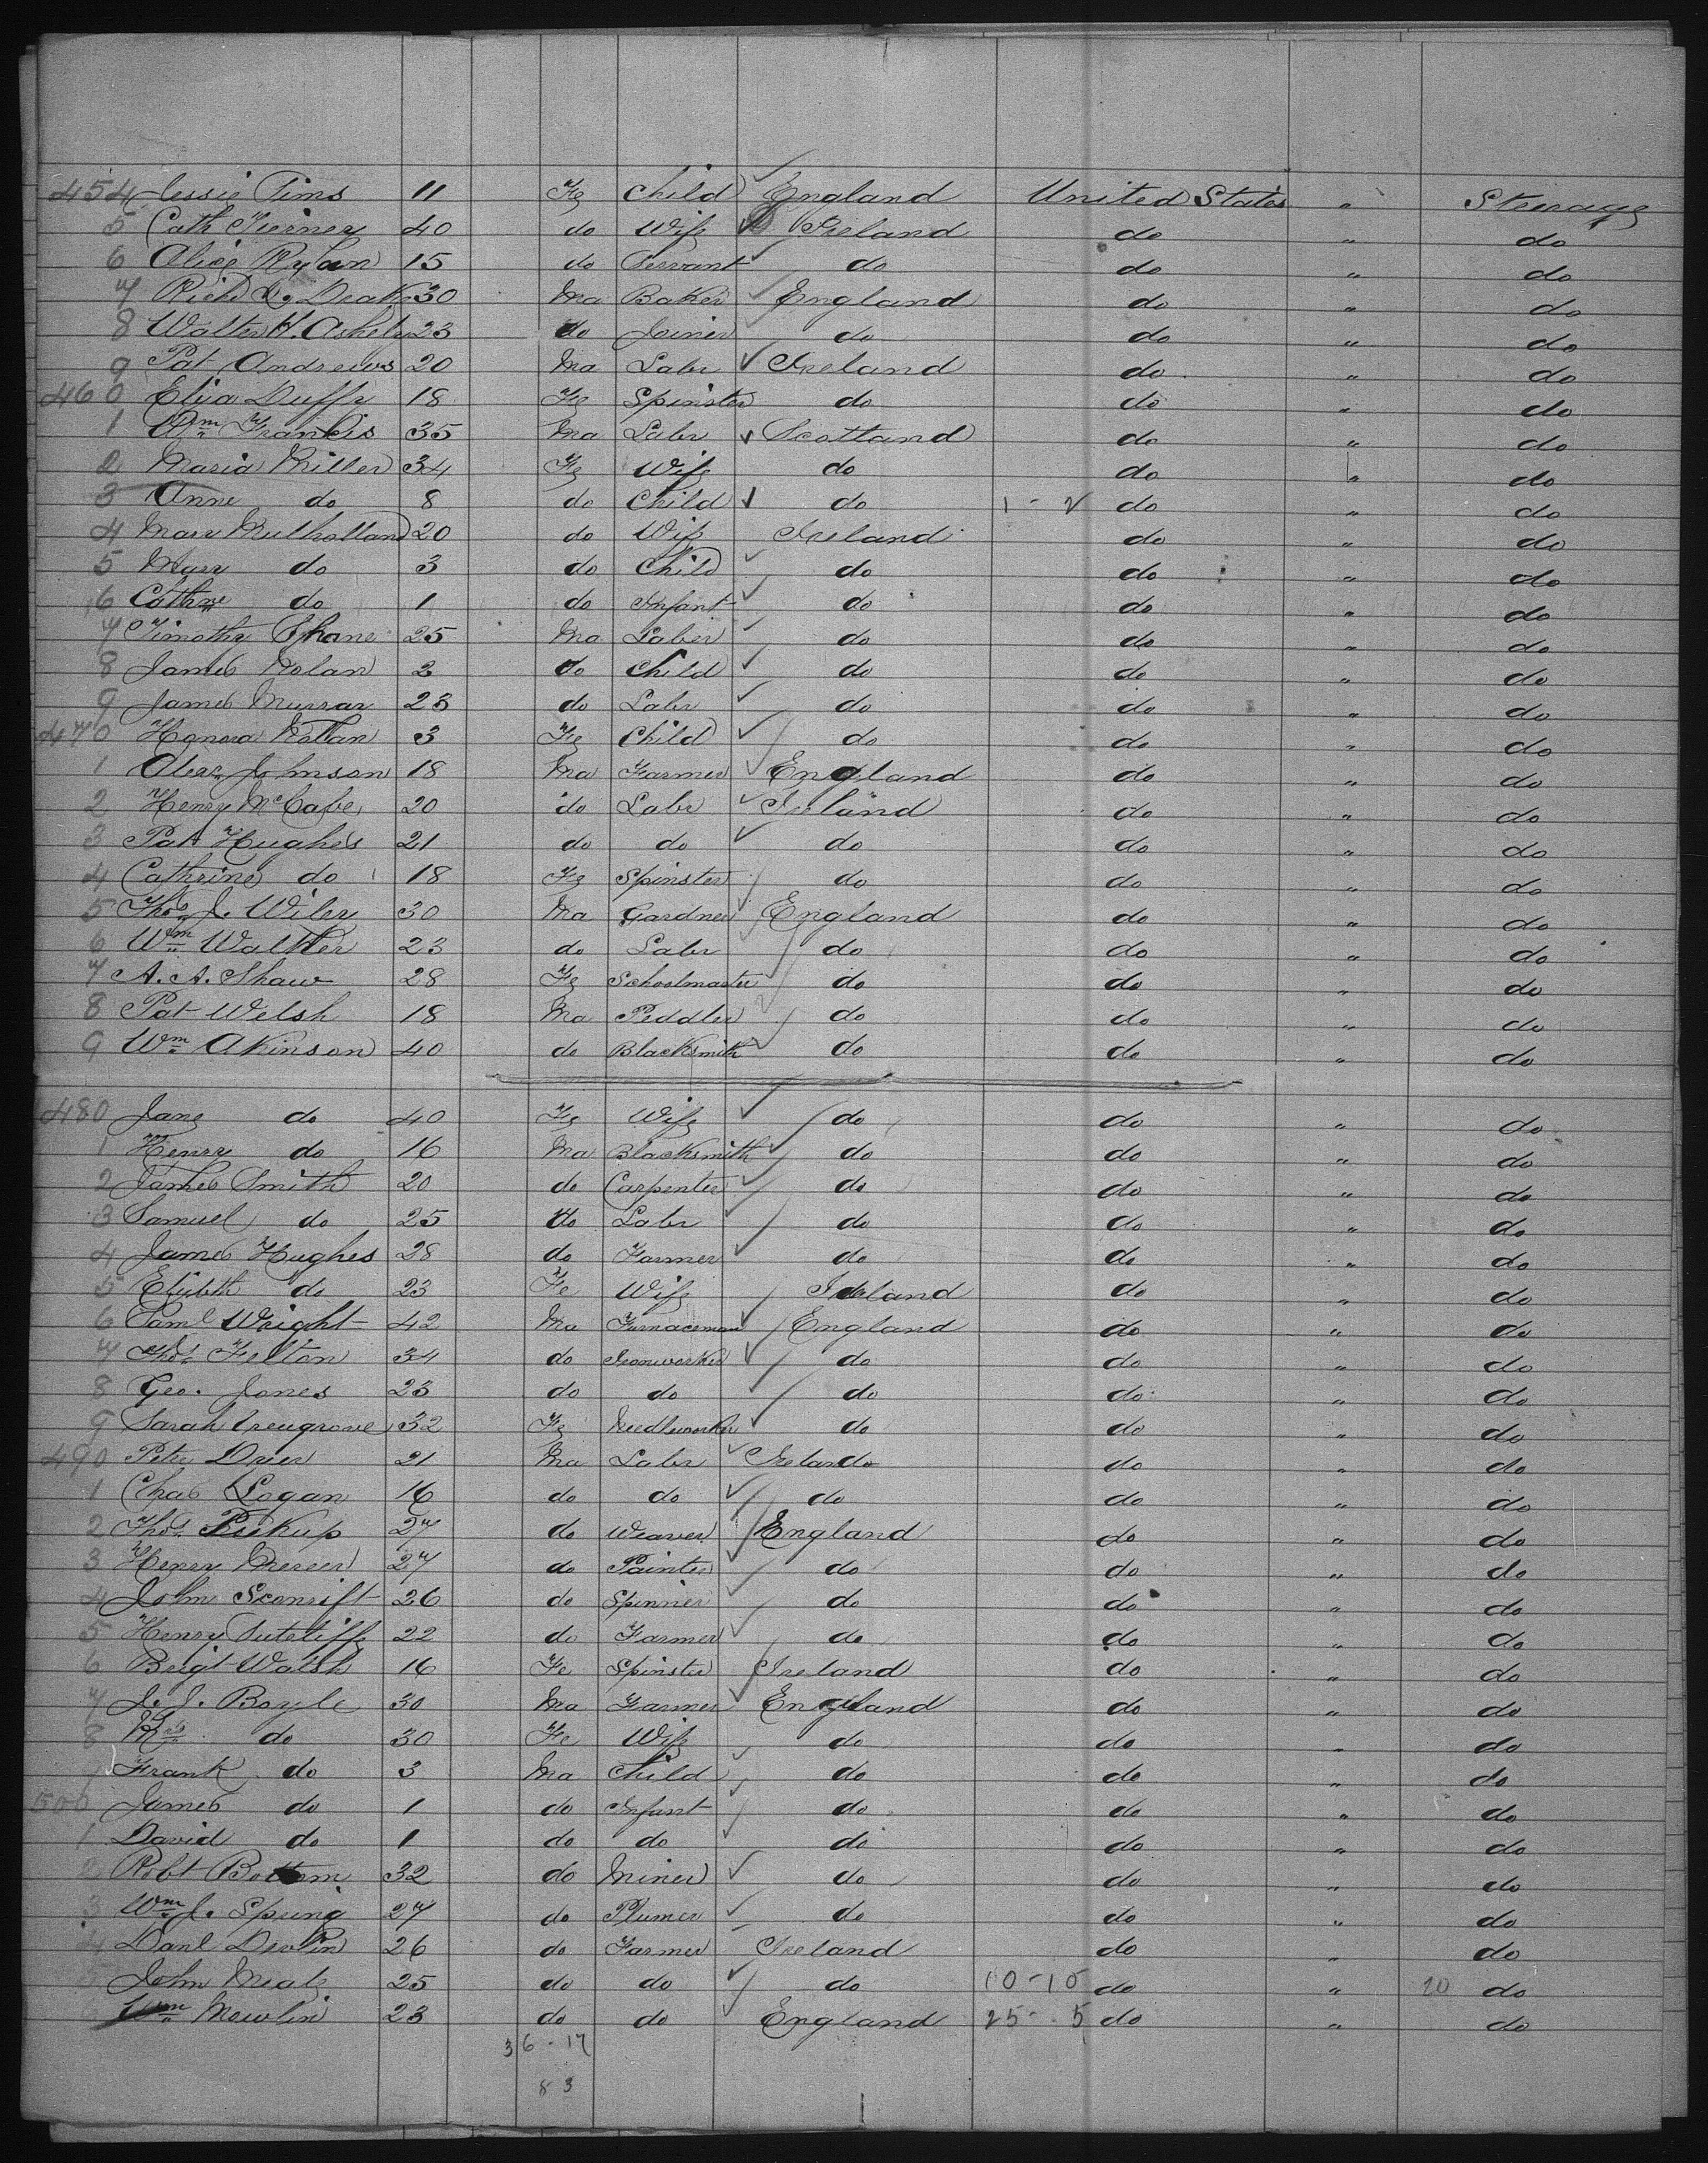 454 Jessie Tims 11 Fe Child England United States " Steerage
5 Cath Tierney 40 do Wife Ireland do " do
6 Alice Rylan 15 do Servant do do " do
7 Richd Drake 30 Ma Baker England do " do
8 Walter H. Ashely 23 do Joiner do do " do
9 Pat Andrews 20 Ma Labr Ireland do " do
460 Eliza Duffy 18 Fe Spinster do do " do
1 Wm Francis 35 Ma Labr Scotland do " do
2 Maria Miller 34 Fe Wife do do " do
3 Anne do 8 do Child do 1 - 2 do " do
4 Mary Mulholland 20 do Wife Ireland do " do
5 Mary do 3 do Child do do " do
6 Cathne do 1 do Infant do do " do
7 Timothy 25 Ma Laber do do " do
8 James Nolan 2 do Child do do " do
9 James Murray 23 do Labr do do " do
470 Honora Nolan 3 Fe Child do do " do
1 Alexr Johnson 18 Ma Farmer England do " do
2 Henry McCabe 20 do Labr Ireland do " do
3 Pat Hughes 21 do do do do " do
4 Cathrine do 18 Fe Spinster do do " do
5 Thos J. Wiley 30 Ma Gardner England do " do
6 Wm Walther 23 do Labr do do " do
7 A. A. Shaw 28 Fe Schoolmaster do do " do
8 Pat Welsh 18 Ma Peddler do do " do
9 Wm Akinson 40 do Blacksmith do do " do
480 Jane do 40 Fe Wife do do " do
1 Henry do 16 Ma Blacksmith do do " do
2 James Smith 20 do Carpenter do do " do
3 Samuel do 25 do Labr do do " do
4 James Hughes 28 do Farmer do do " do
5 Elizbth do 23 Fe Wife Ireland do " do
6 Saml Wright 42 Ma Furnaceman England do " do
7 Thos Felton 34 do Ironworker do do " do
8 Geo. Jones 23 do do do do " do
9 Sarah 32 Fe Needleworker do do " do
490 Peter Drier 21 Ma Labr Ireland do " do
1 Chas Logan 16 do do do do " do
2 Thos Pickup 27 do Weaver England do " do
3 Henry Mercer 27 do Painter do do " do
4 John 26 do Spinner do do " do
5 Henry Sutcliffe 22 do Farmer do do " do
6 Bergt Walsh 16 Fe Spinster Ireland do " do
7 J. J. Boyle 30 Ma Farmer England do " do
8 Mrs do 30 Fe Wife do do " do
Frank do 3 Ma Child do do " do
500 James do 1 do Infant do do " do
1 David do 1 do do do do " do
2 Robt Bottom 32 do Miner do do " do
3 Wm J. Spring 27 do Plumer do do " do
4 Danl Devlin 26 do Farmer Ireland do " do
John Meals 25 do do do 10-10 do " 20 do
Wm Mowlin 23 do do England 25 - 5 do " do
36 - 17
83